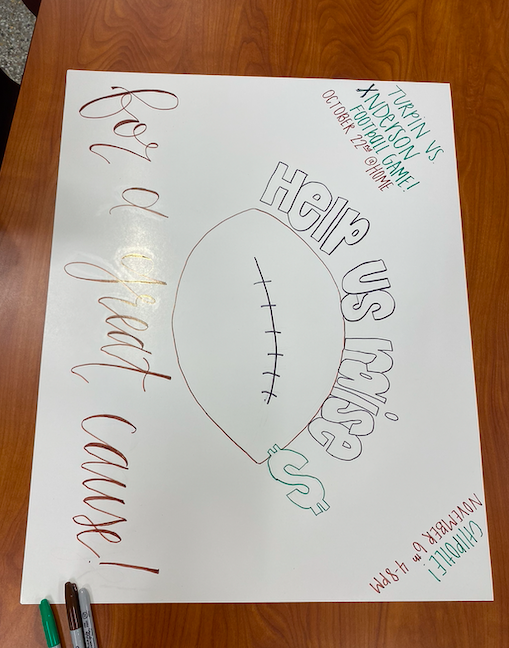 TURPIN VS
XNDERSON
FOOTBALL GAME!
OCTOBER 22nd @ HOME
CHIPOTLE!
NOVEMBER 6th 4-8PM
Help us raise $
for a great cause!